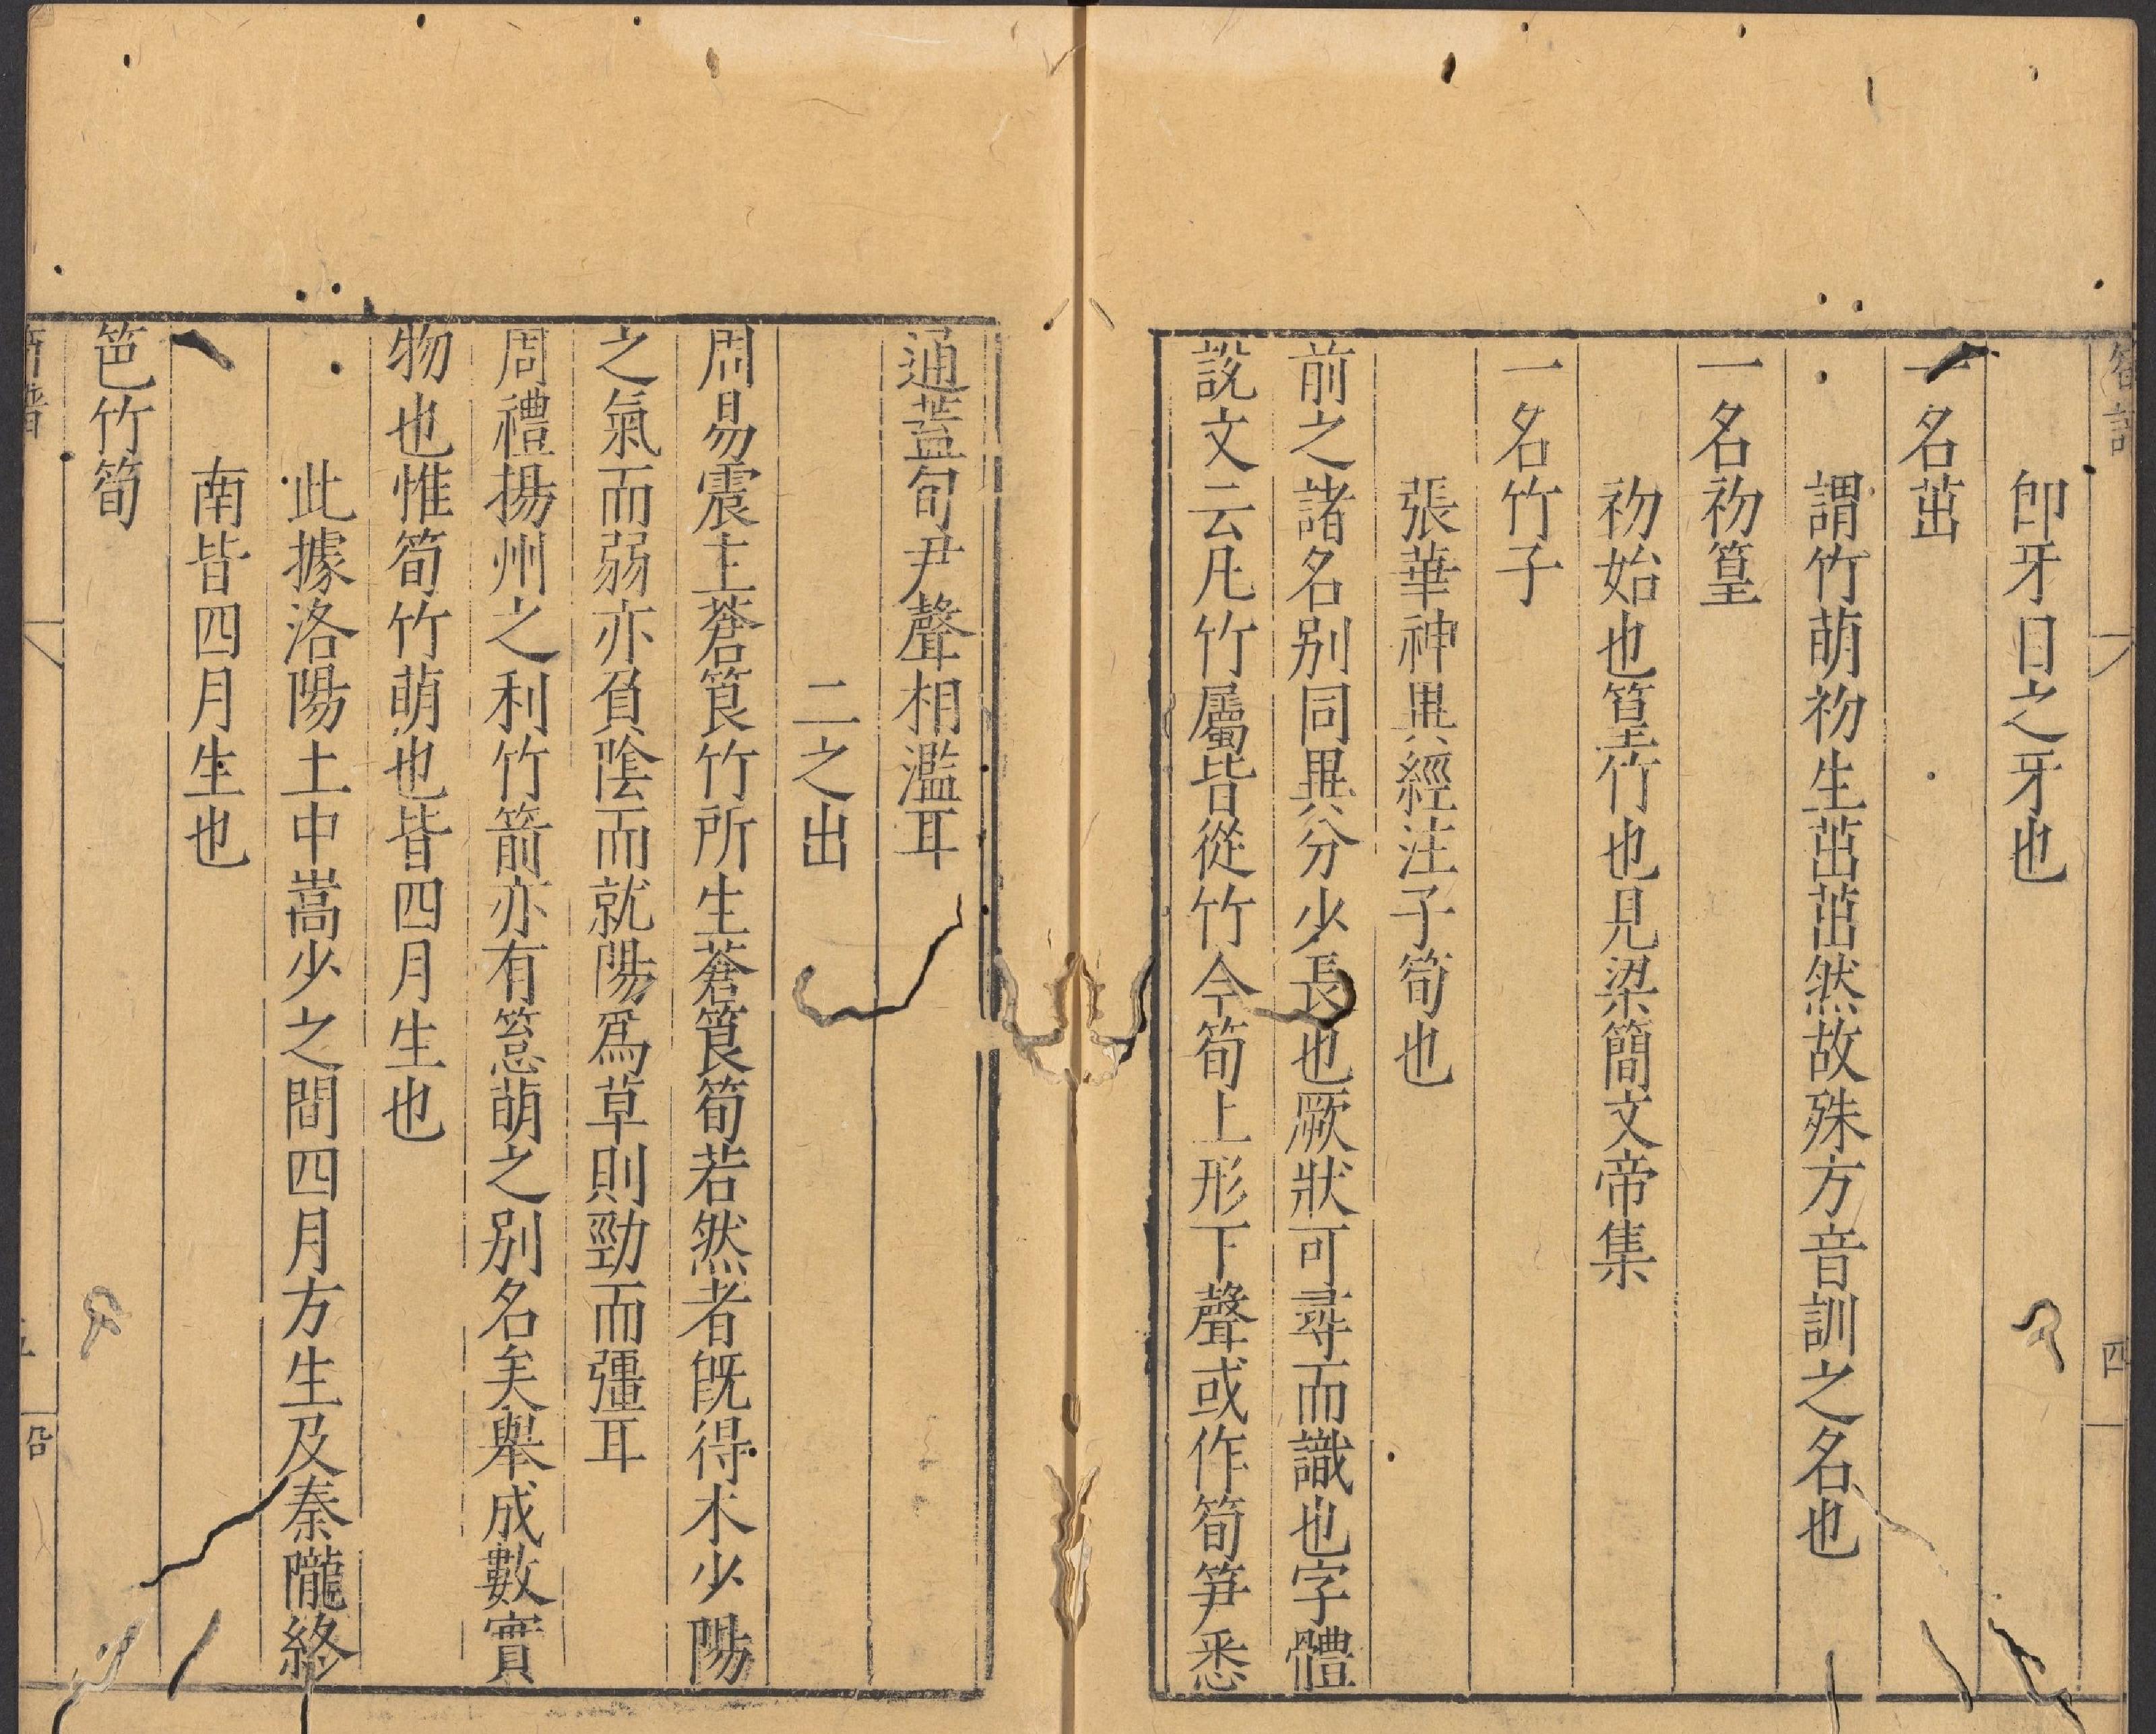 筍譜
四
卽牙日之牙也
一名茁
謂竹萌初生茁茁然故殊方音訓之名也
一名初篁
初始也篁竹也見梁簡文帝集
一名竹子
張華神異經注子筍也
前之諸名别同異分少長也厥狀可尋而識也字體
説文云凡竹屬皆從竹今筍上形下聲或作筍笋悉
通蓋旬尹聲相濫耳
二之出
周易震主蒼筤竹所生蒼筤筍若然者旣得木少陽
之氣而弱亦負隂而就陽爲草則勁而彊耳
周禮揚州之利竹箭亦有䈚萌之别名矣舉成數實
物也惟筍竹萌也皆四月生也
此據洛陽土中嵩少之間四月方生及秦隴終
南皆四月生也
笆竹筍